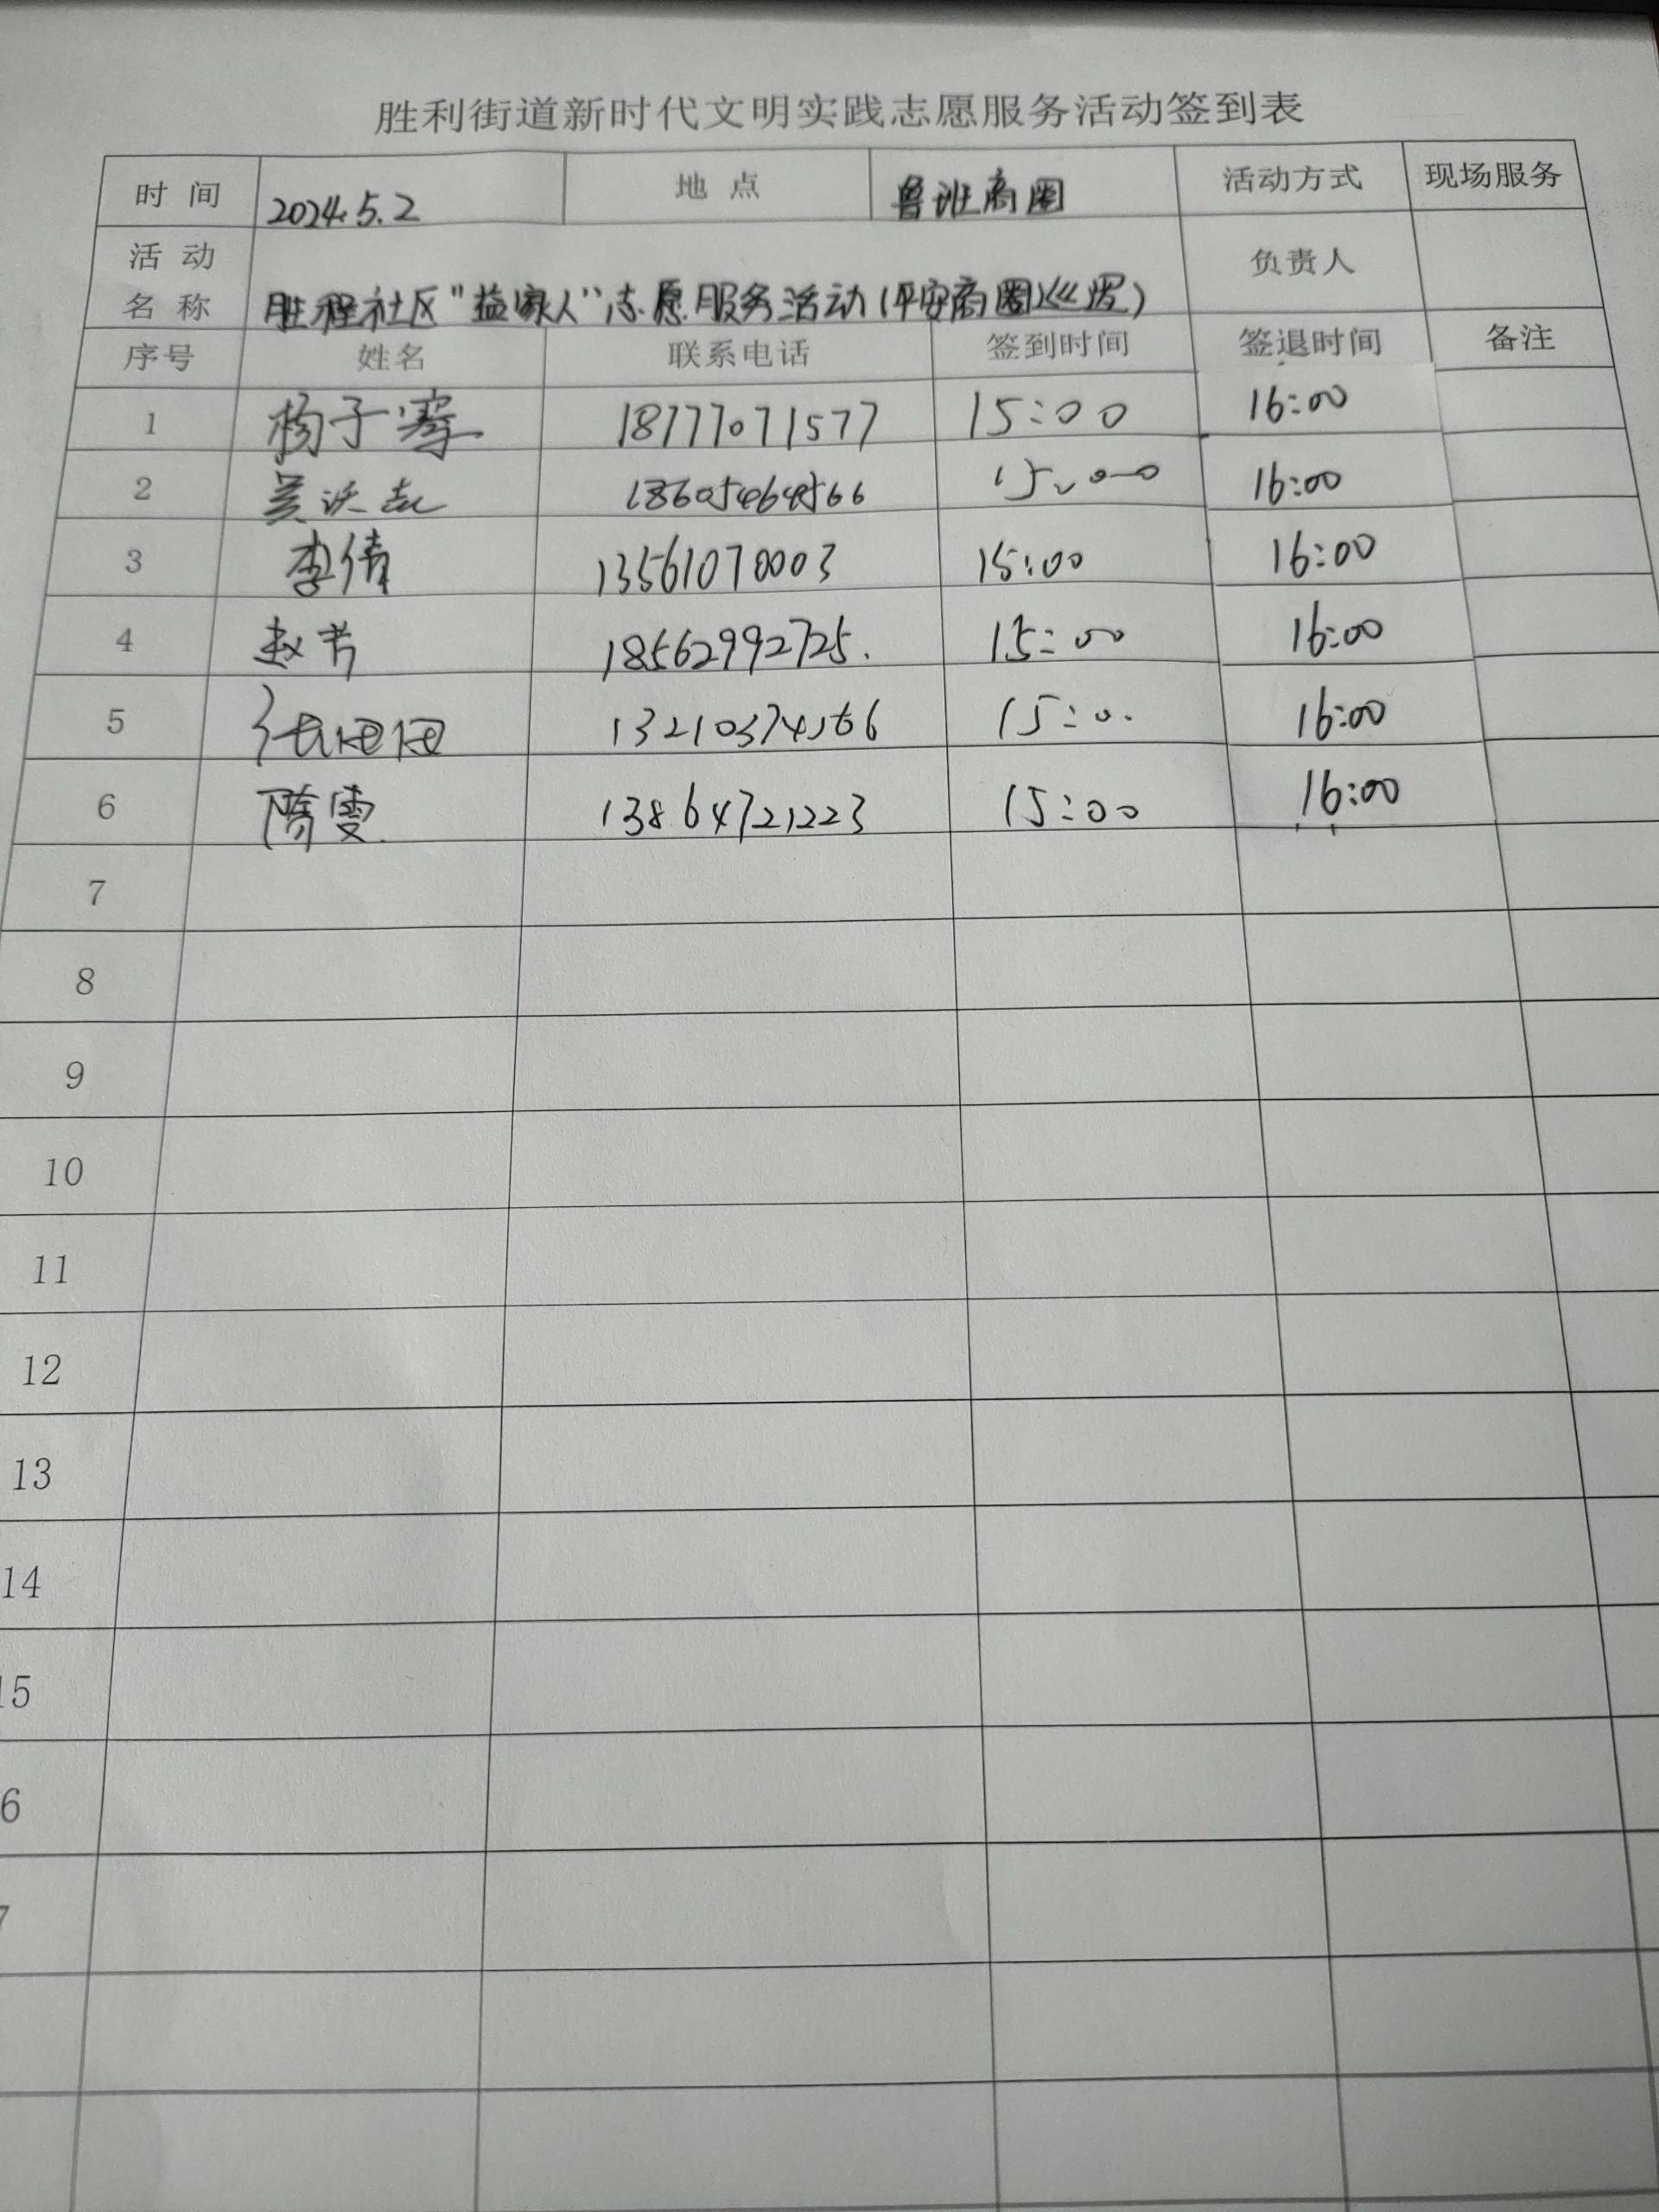 胜利街道新时代文明实践志愿服务活动签到表
时 间 2024.5.2 地 点 鲁班商圈 活动方式 现场服务
活 动 名 称 胜程社区"益家人"志愿服务活动(平安商圈巡逻) 负责人
序号 姓名 联系电话 签到时间 签退时间 备注
1 杨子骞 18777071577 15:00 16:00
2 18605464566 15:00 16:00
3 李倩 13561070003 15:00 16:00
4 赵芳 18562992725. 15:00 16:00
5 13210374566 15:0. 16:00
6 隋雯. 13864721223 15:00 16:00
7
8
9
10
11
12
13
14
15
6
7